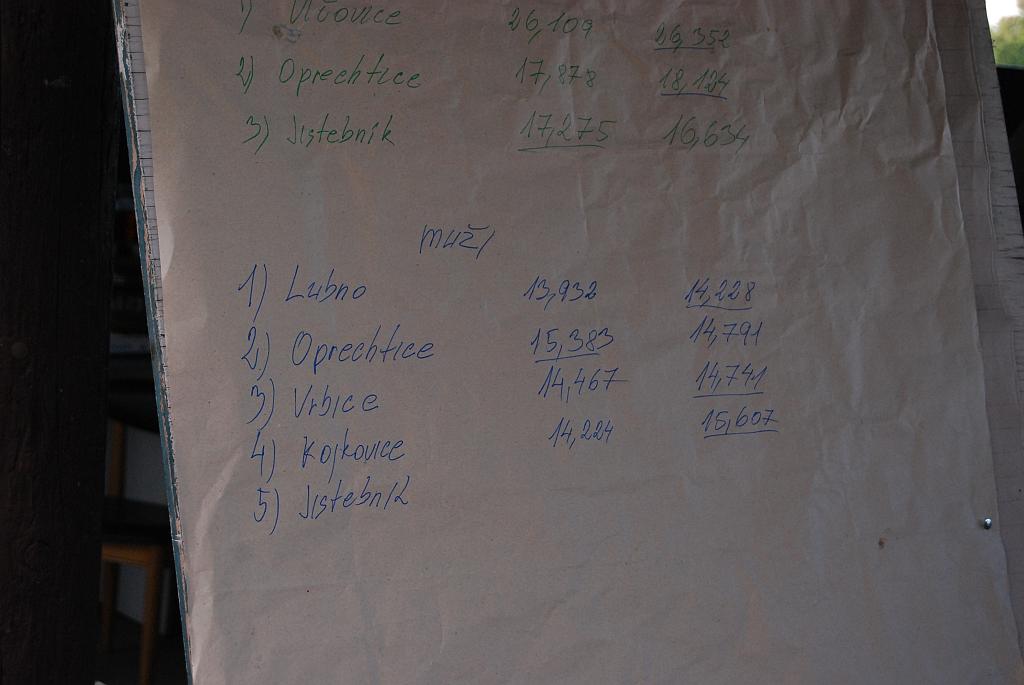 1) Vlčovice 26,109 26,352
2) Oprechtice 17,878 18,124
3) Jistebník 17,275 16,634
muži
1) Lubno 13,932 14,228
2) Oprechtice 15,383 14,791
3) Vrbice 14,467 14,741
4) Kojkovice 14,224 15,607
5) Jistebník